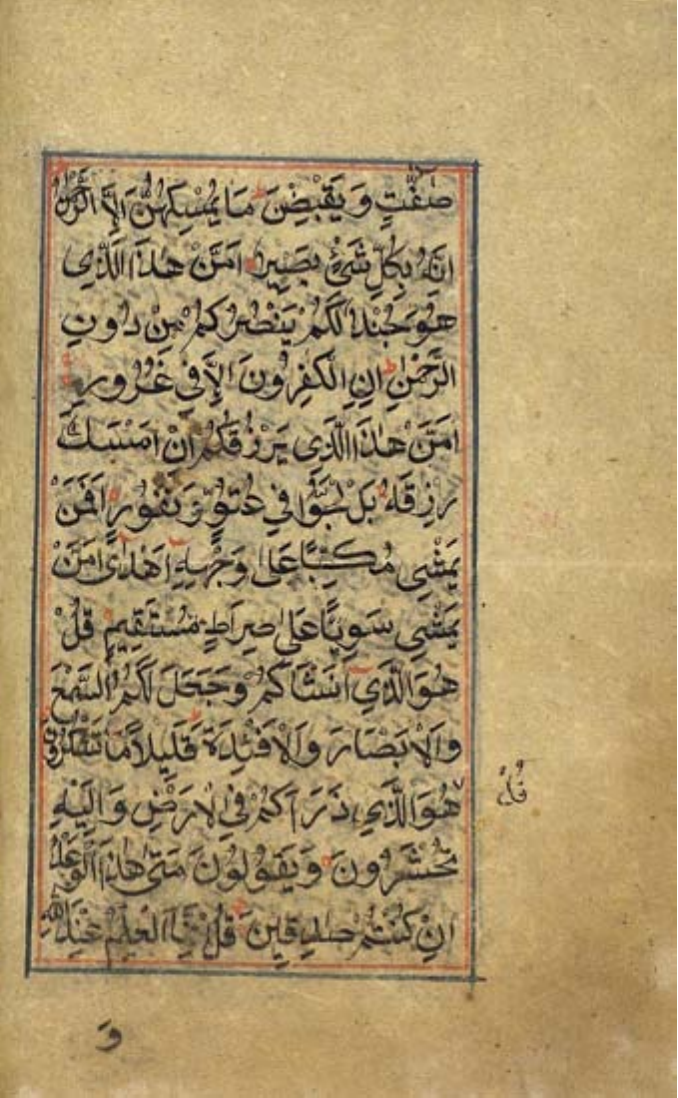 صٰٓفّٰتٍ وَ يَقْبِضْنَ مَا يُمْسِكُهُنَّ اِلَّا الرَّحْمٰنُ
اِنَّهٗ بِكُلِّ شَيْءٍۭ بَصِيْرٌ اَمَّنْ هٰذَا الَّذِي
هُوَ جُنْدٌ لَّكُمْ يَنْصُرُكُمْ مِنْ دُوْنِ
الرَّحْمٰنِ اِنِ الْكٰفِرُوْنَ اِلَّا فِيْ غُرُوْرٍ
اَمَّنْ هٰذَا الَّذِي يَرْزُقُكُمْ اِنْ اَمْسَكَ
رِزْقَهٗ بَلْ لَّجُّوْا فِيْ عُتُوٍّ وَّ نُفُوْرٍ اَفَمَنْ
يَّمْشِيْ مُكِبًّا عَلٰى وَجْهِهٖ اَهْدٰٓى اَمَّنْ
يَّمْشِيْ سَوِيًّا عَلٰى صِرَاطٍ مُّسْتَقِيْمٍ قُلْ
هُوَ الَّذِيْ اَنْشَاَكُمْ وَجَعَلَ لَكُمُ السَّمْعَ
وَالْاَبْصَارَ وَالْاَفْـِٕدَةَ قَلِيْلًا مَّا تَشْكُرُوْنَ
هُوَ الَّذِيْ ذَرَاَكُمْ فِي الْاَرْضِ وَاِلَيْهِ
قُلْ
تُحْشَرُوْنَ وَيَقُوْلُوْنَ مَتٰى هٰذَا الْوَعْدُ
اِنْ كُنْتُمْ صٰدِقِيْنَ قُلْ اِنَّمَا الْعِلْمُ عِنْدَ اللّٰهِ
وَ